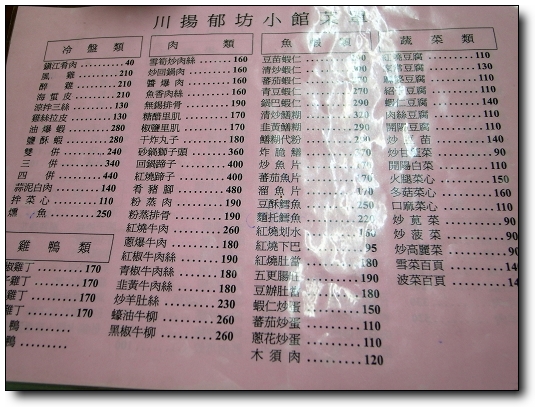 川揚郁坊小館菜單
冷盤類
鎮江肴肉 40
風雞 210
醉雞 210
海蜇皮 210
涼拌三絲 130
雞絲拉皮 130
油爆蝦 280
鹽酥蝦 280
雙併 240
三併 340
四併 440
蒜泥白肉 140
拌菜心 110
燻魚 250
雞鴨類
椒雞丁 170
雞丁 170
雞丁 170
鴨
鴨
肉類
雪筍炒肉絲 160
炒回鍋肉 160
醬爆肉 160
魚香肉絲 160
無錫排骨 190
糖醋里肌 170
椒鹽里肌 170
干炸丸子 180
砂鍋獅子頭 360
回鍋蹄子 400
紅燒蹄子 400
肴豬腳 480
粉蒸肉 190
粉蒸排骨 190
紅燒牛肉 260
蔥爆牛肉 180
紅椒牛肉絲 180
青椒牛肉絲 180
韭黃牛肉絲 180
炒羊肚絲 230
蠔油牛柳 260
黑椒牛柳 260
魚蝦類
豆苗蝦仁
清炒蝦仁
番茄蝦仁
青豆蝦仁
鍋巴蝦仁 290
清炒鱔糊 320
韭黃鱔糊
鱔糊代粉 290
炸脆鱔 370
炒魚片 170
番茄魚片 170
溜魚片 170
豆酥鱈魚 250
麵托鱈魚 220
紅燒划水 180
紅燒下巴 95
紅燒肚當 180
五更腸旺 190
豆瓣肚當 180
蝦仁炒蛋 150
番茄炒蛋 110
蔥花炒蛋 110
木須肉 120
蔬菜類
豆腐 110
豆腐 130
豆腐 110
豆腐 110
蝦仁豆腐 140
肉絲豆腐 110
開陽豆腐 110
炒豆苗 140
炒甘豆菜 90
開陽白菜 110
火腿菜心 150
多菇菜心 160
口蘑菜心 110
炒莧菜 90
炒菠菜 90
炒高麗菜 90
雪菜百頁 14
波菜百頁 14